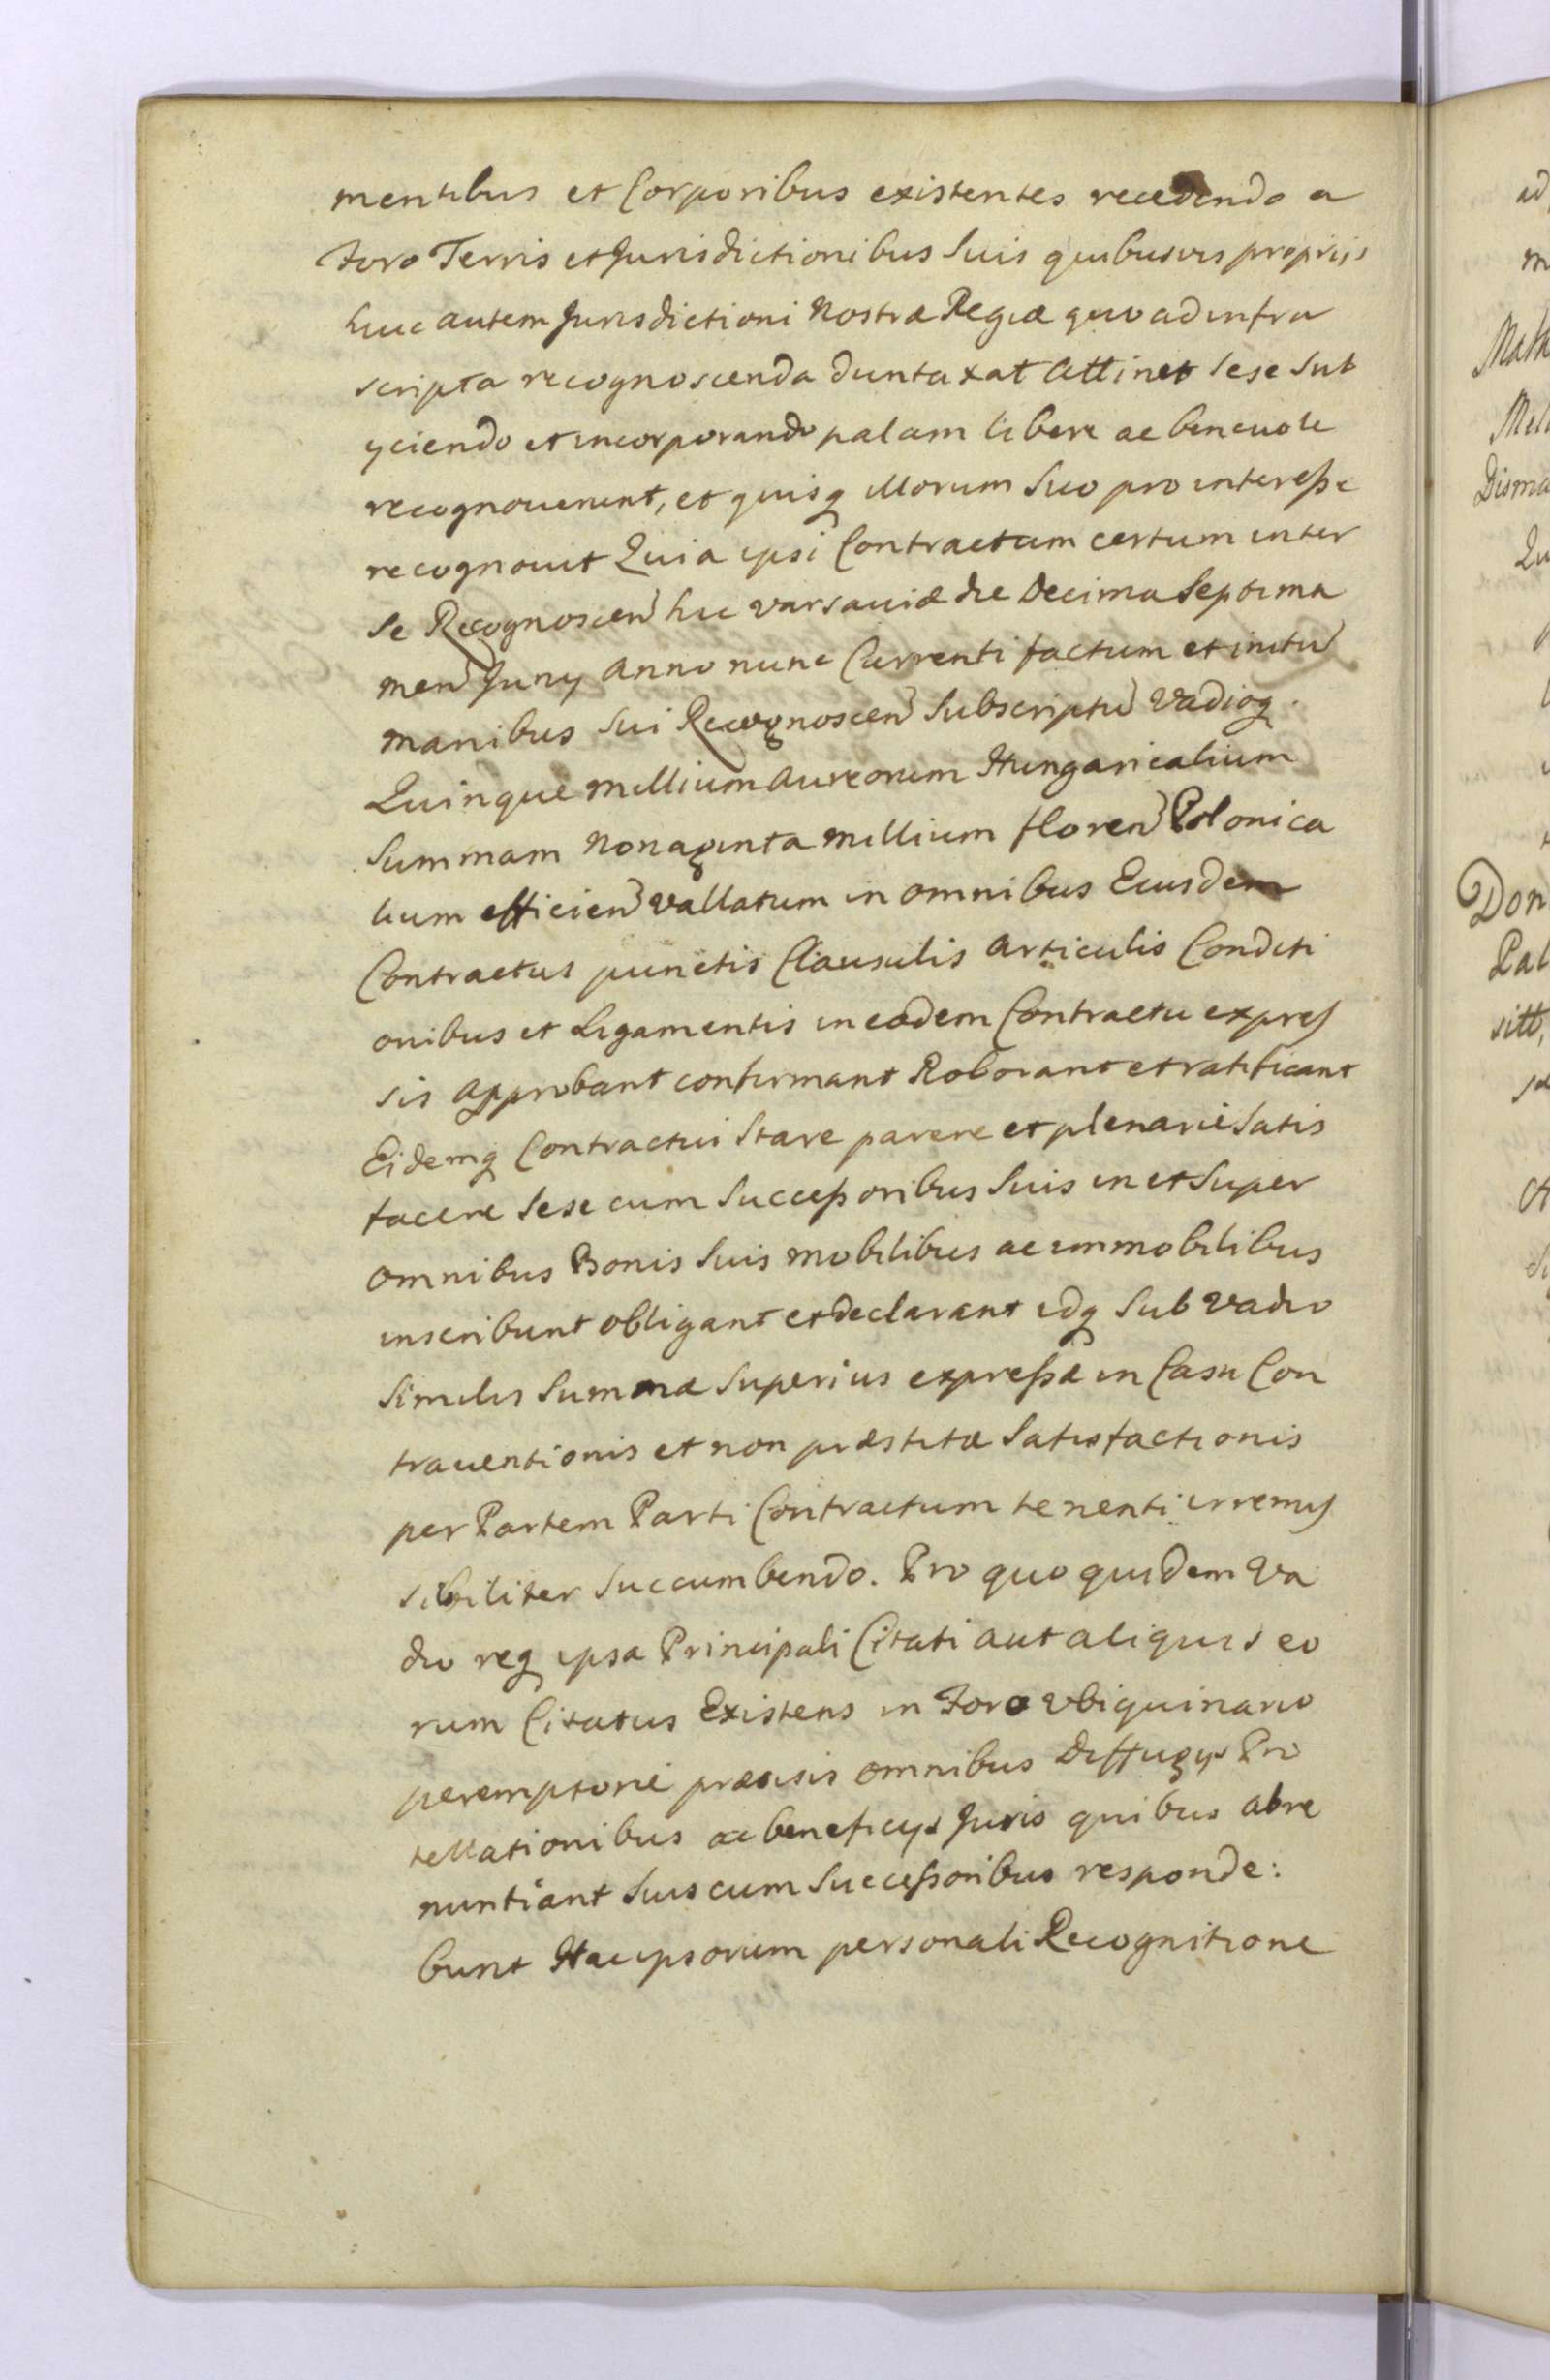 mentibus et Corporibus existentes recedendo a
Foro Terris et Jurisdictionibus Suis quibusvis proprijs
huic autem Jurisdictioni Nostræ Regiæ quo ad infra
scripta recognoscenda duntaxat Attinet Sese Sub
yciendo et incorporando palam libere ac beneuole
recognouerunt, et quisq illorum Suo pro interesse
recognouit Quia ipsi Contractum certum inter
Se Recognoscen hic Varsauiæ die Decima Septima
men Juny Anno nunc Currenti factum et initu
manibus Sui Recognoscen Subscriptu Vadioq
Quinque Millium Aureorum Hungaricalium
Summam Nonaginta Millium floren Polonica
lium efficien Vallatum in omnibus Eiusdem
Contractus punctis Clausulis Articulis Conditi
onibus et Ligamentis in eodem Contractu expres
sis Approbant confirmant Roborant et ratificant
Eidemq Contractui Stare parere et plenarie Satis
facere Sese cum Successoribus Suis in et Super
Omnibus Bonis Suis Mobilibus ac immobilibus
inscribunt obligant et declarant idq Sub Vadio
Similis Summæ Superius expressæ in Casu Con
trauentionis et non præstitæ Satisfactionis
per Partem Parti Contractum tenenti irremis
sibiliter Succumbendo. Pro quo quidem Va
dio req ipsa Principali Citati aut aliquis eo
rum Citatus Existens in Foro Ubiquinario
peremptorie præcisis omnibus Diffugys Pro
tellationibus ac beneficys Juris quibus abre
nuntiant Suis cum Successoribus responde:
bunt Hac ipsorum personali Recognitione